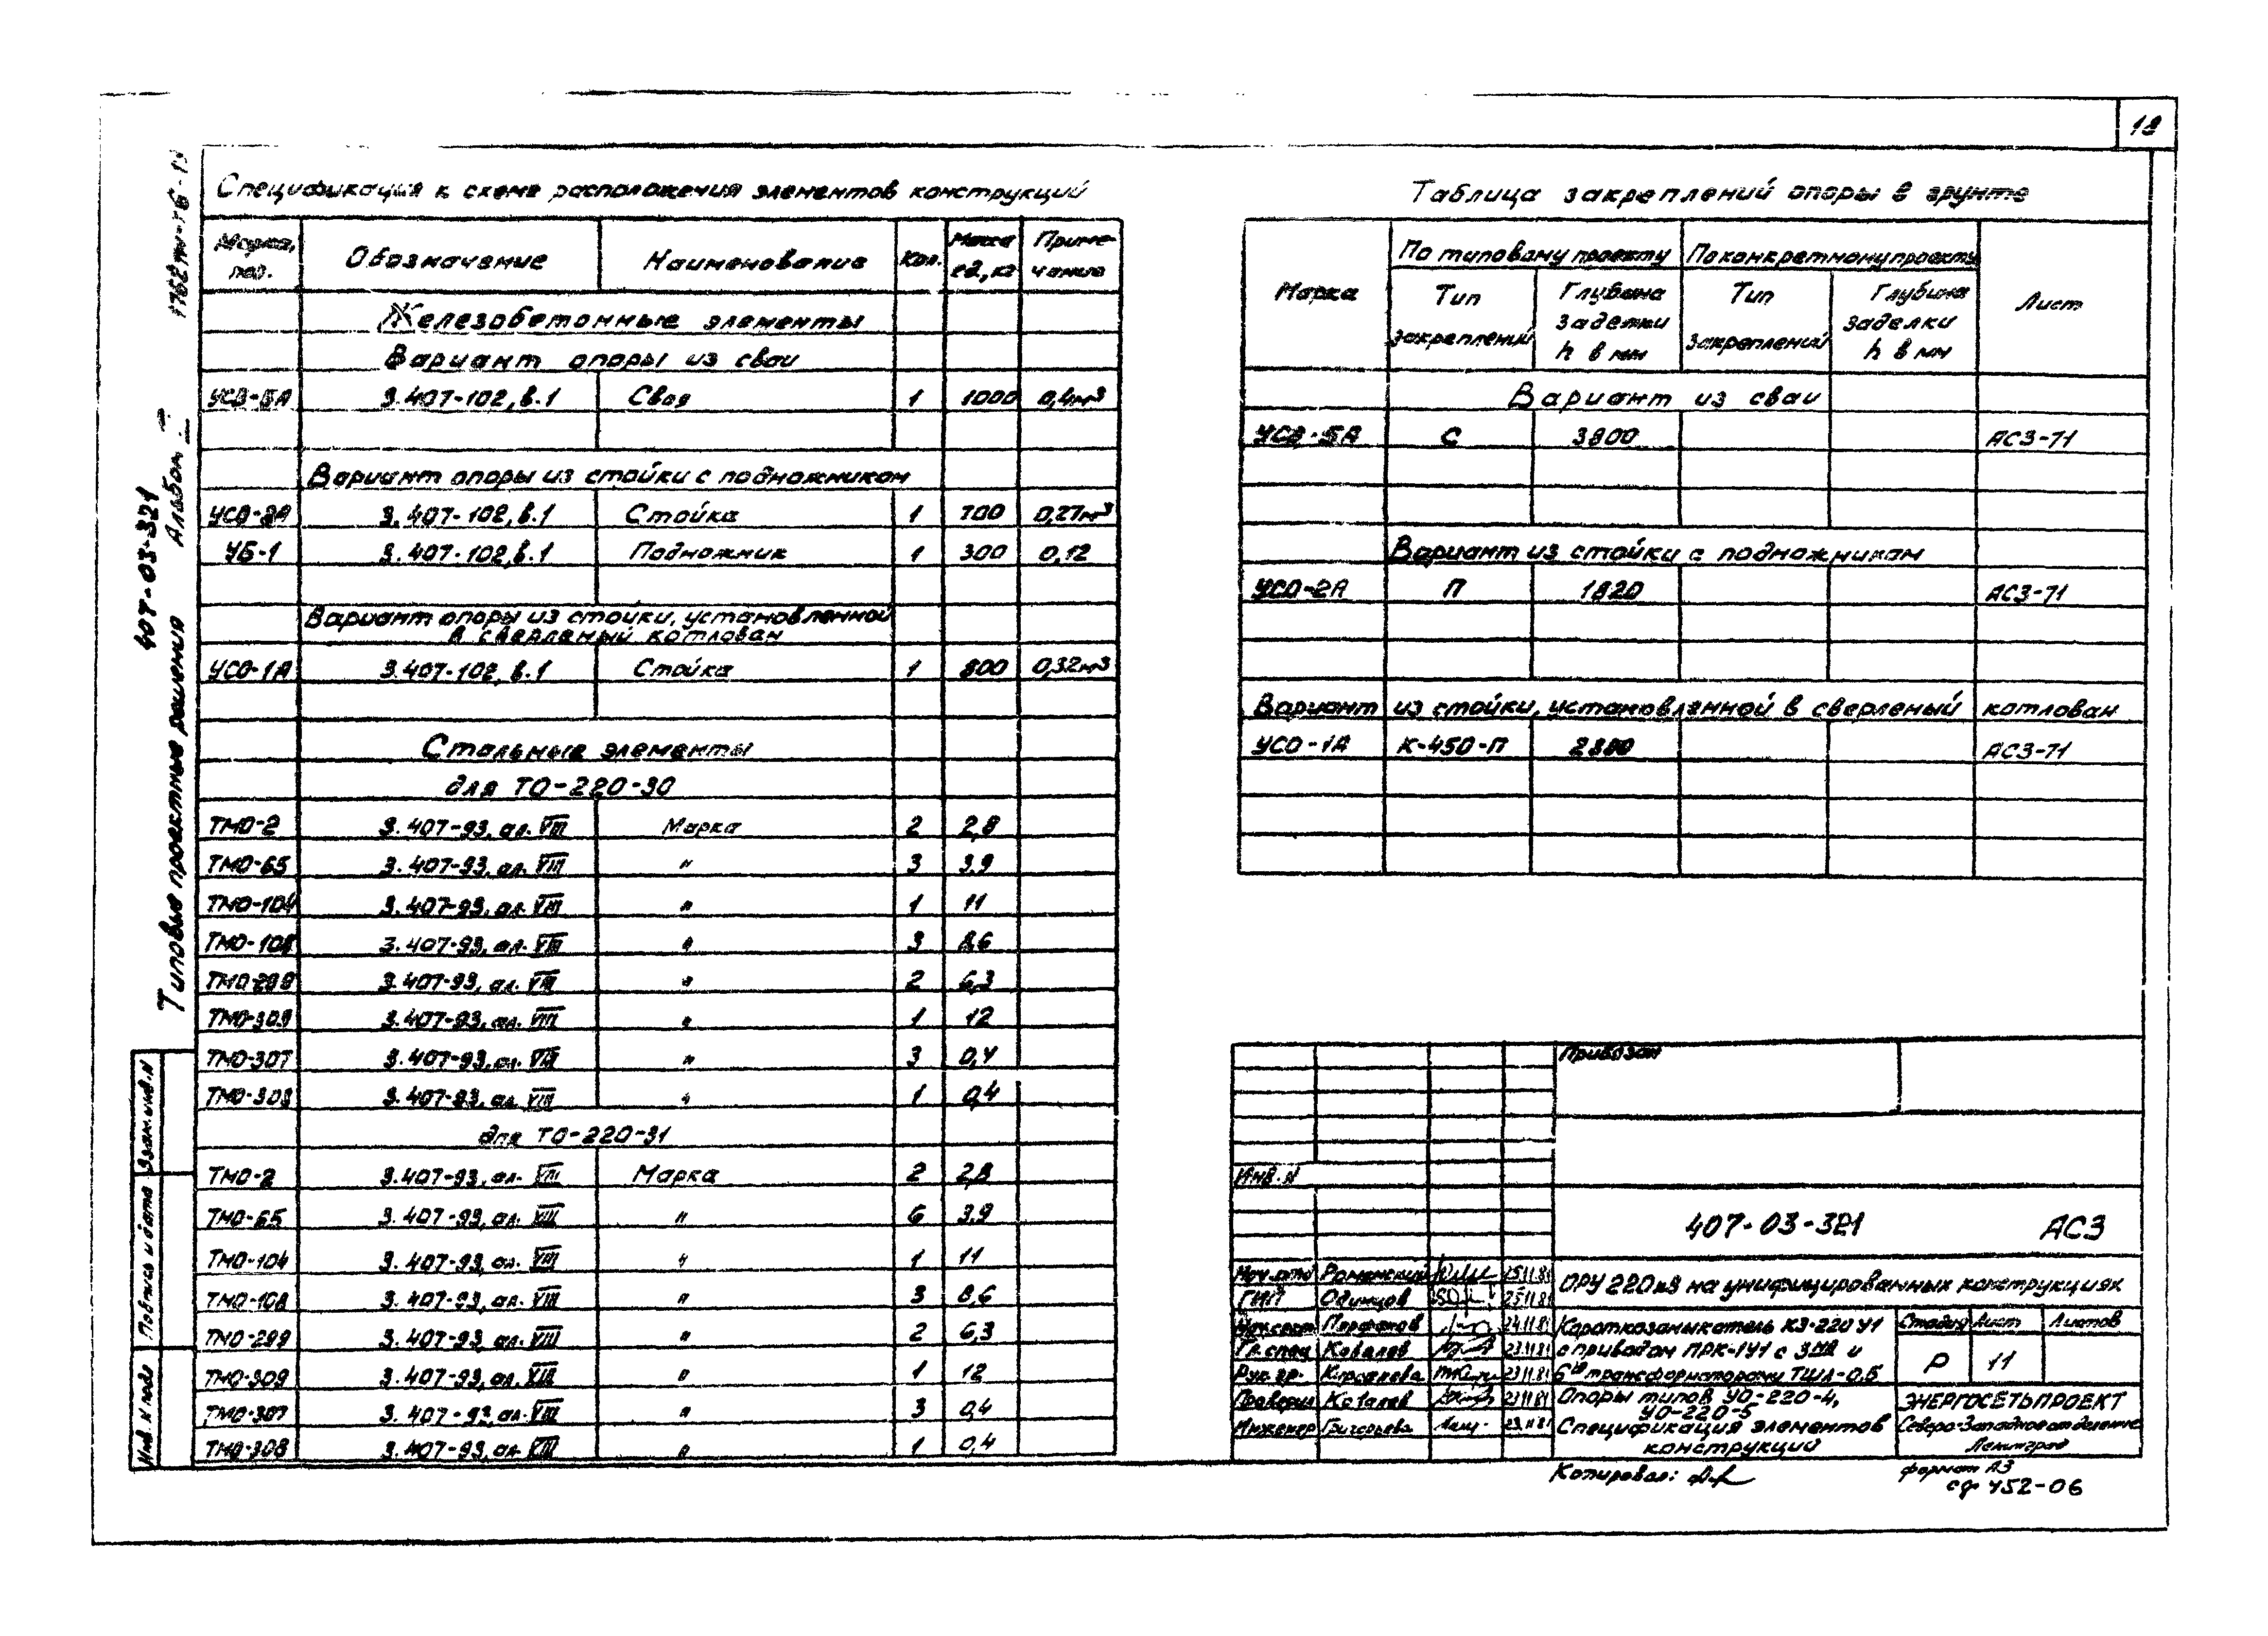 18
Спецификация к схеме расположения элементов конструкций
Марка, поз. Обозначение Наименование Кол. Масса ед, кг Примечание
Железобетонные элементы
Вариант опоры из сваи
3.407-102, в.1 Свая 1 1000 0,4м³
Вариант опоры из стойки с подножником
3.407-102, в.1 Стойка 1 700 0,27м³
УБ-1 3.407-102, в.1 Подножник 1 300 0,12
Вариант опоры из стойки, установленной
в сверленый котлован
УСО-1А 3.407-102, в.1 Стойка 1 800 0,32м³
Стальные элементы
для ТО-220-30
ТМО-2 3.407-93, ал. VIII Марка 2 2,8
ТМО-65 3.407-93, ал. VIII " 3 3,9
ТМО-104 3.407-93, ал. VIII " 1 11
ТМО-108 3.407-93, ал. VIII " 3 8,6
ТМО-299 3.407-93, ал. VIII " 2 6,3
ТМО-309 3.407-93, ал. VIII " 1 12
ТМО-307 3.407-93, ал. VIII " 3 0,4
ТМО-308 3.407-93, ал. VIII " 1 0,4
для ТО-220-31
ТМО-2 3.407-93, ал. VIII Марка 2 2,8
ТМО-65 3.407-93, ал. VIII " 6 3,9
ТМО-104 3.407-93, ал. VIII " 1 11
ТМО-108 3.407-93, ал. VIII " 3 8,6
ТМО-299 3.407-93, ал. VIII " 2 6,3
ТМО-309 3.407-93, ал. VIII " 1 12
ТМО-307 3.407-93, ал. VIII " 3 0,4
ТМО-308 3.407-93, ал. VIII " 1 0,4
Таблица закреплений опоры в грунте
Марка По типовому проекту По конкретному проекту Лист
Тип закреплений Глубина заделки h в мм Тип закреплений Глубина заделки h в мм
Вариант из сваи
С 3800 АС3-71
Вариант из стойки с подножником
УСО-2А П 1820 АС3-71
Вариант из стойки, установленной в сверленый котлован
УСО-1А К-450-П АС3-71
407-03-321
Типовые проектные решения Альбом
Взам.инв.N
Подпись и дата
Инв. N подл
Привязан
Инв. N
407-03-321 АС3
Нач.отд Роменский 25.11.81
ГИП Одинцов 25.11.81
Парфенов 24.11.81
Гл.спец Ковалев 23.11.81
Рук. гр. 23.11.81
Проверил Ковалев 23.11.81
Инженер Григорьева 23.11.81
ОРУ 220кв на унифицированных конструкциях
Короткозамыкатель КЗ-220 У1
с приводом ПРК-1У1 с и
трансформатором ТШЛ-0,5
Опоры типов УО-220-4,
УО-220-5
Спецификация элементов
конструкций
Стадия Лист Листов
Р 11
ЭНЕРГОСЕТЬПРОЕКТ
Северо-Западное отделение
Ленинград
Копировал:
формат А3
сф 452-06